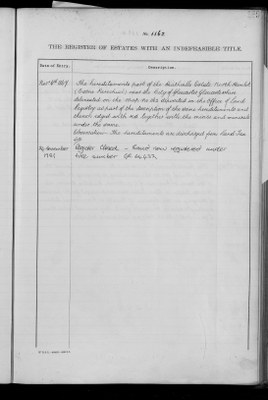 No. 1162
THE REGISTER OF ESTATES WITH AN INDEFEASIBLE TITLE.
Date of Entry. Description.
The hereditaments part of the Estate North Hamlet
near the City of Gloucester Gloucestershire
delineated on the Map No. deposited in the Office of Land
Registry as part of the description of the same hereditaments and
thereon edged with red together with the mines and minerals
under the same.
Observation – The hereditaments are discharged from Land Tax
November Register Closed – Land now registered under
1921 title number